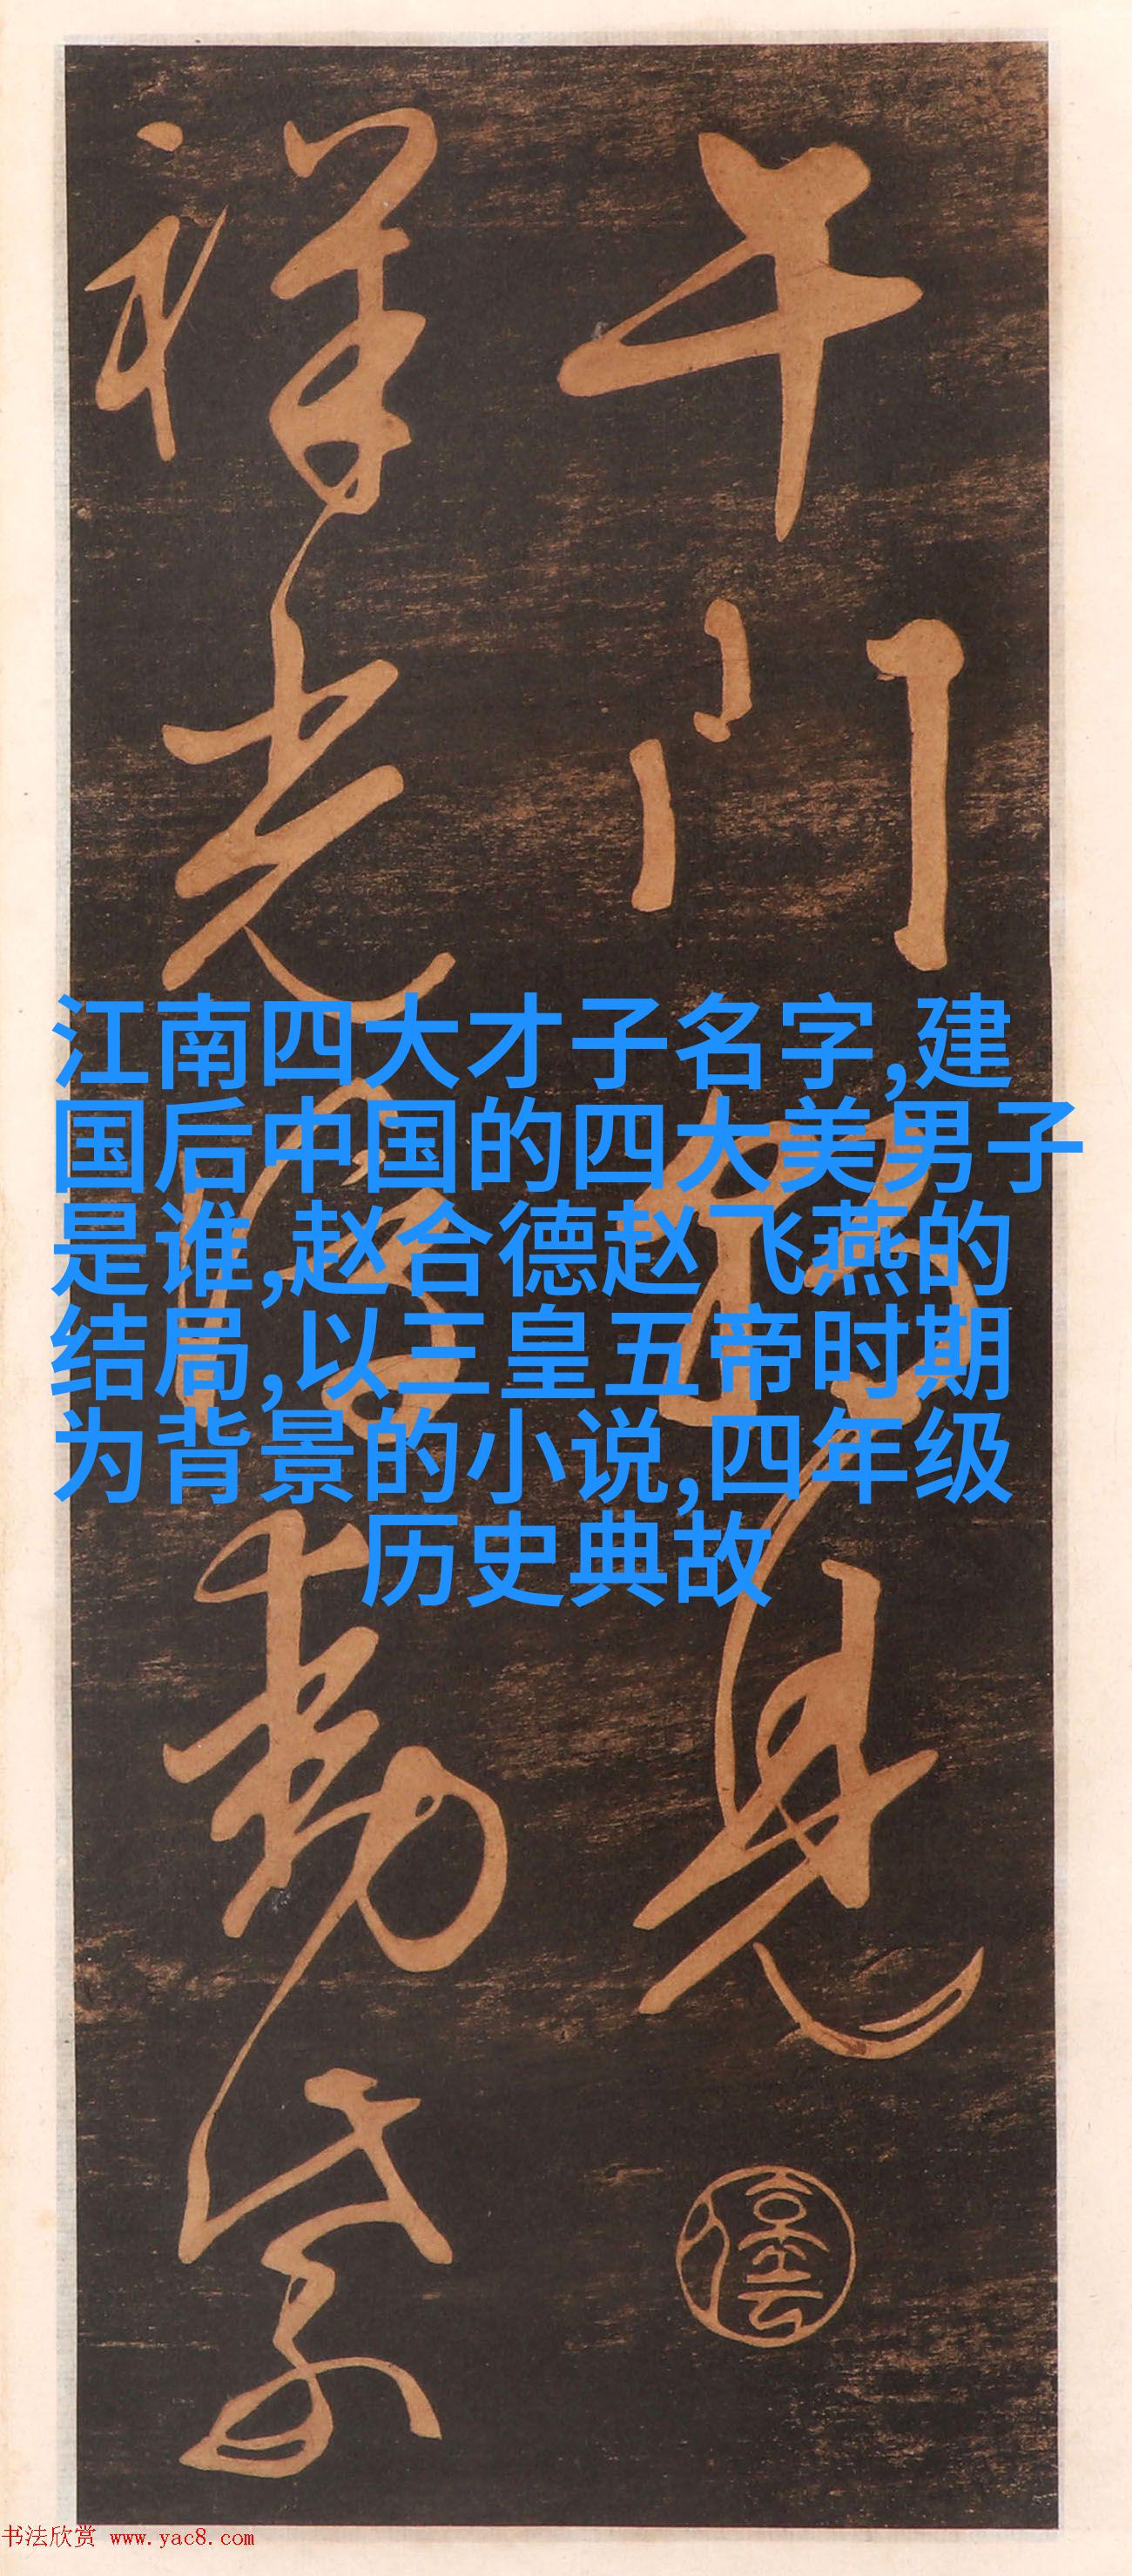 午门
见
祥光
动紫
江南四大才子名字,建
国后中国的四大美男子
是谁,赵合德赵飞燕的
结局,以三皇五帝时期
为背景的小说,四年级
历史典故
书法欣赏 www.yac8.com